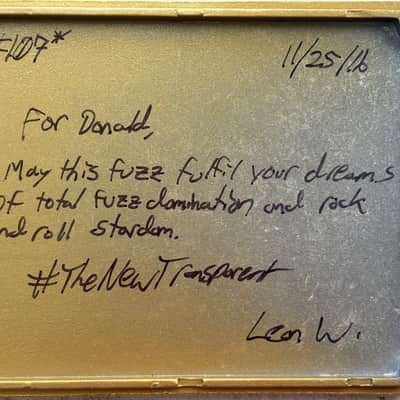 #107* 11/25/16
For Donald,
May this fuzz fulfil your dreams
of total fuzz domination and rock
and roll stardom.
#TheNewTransparent
Leon W.